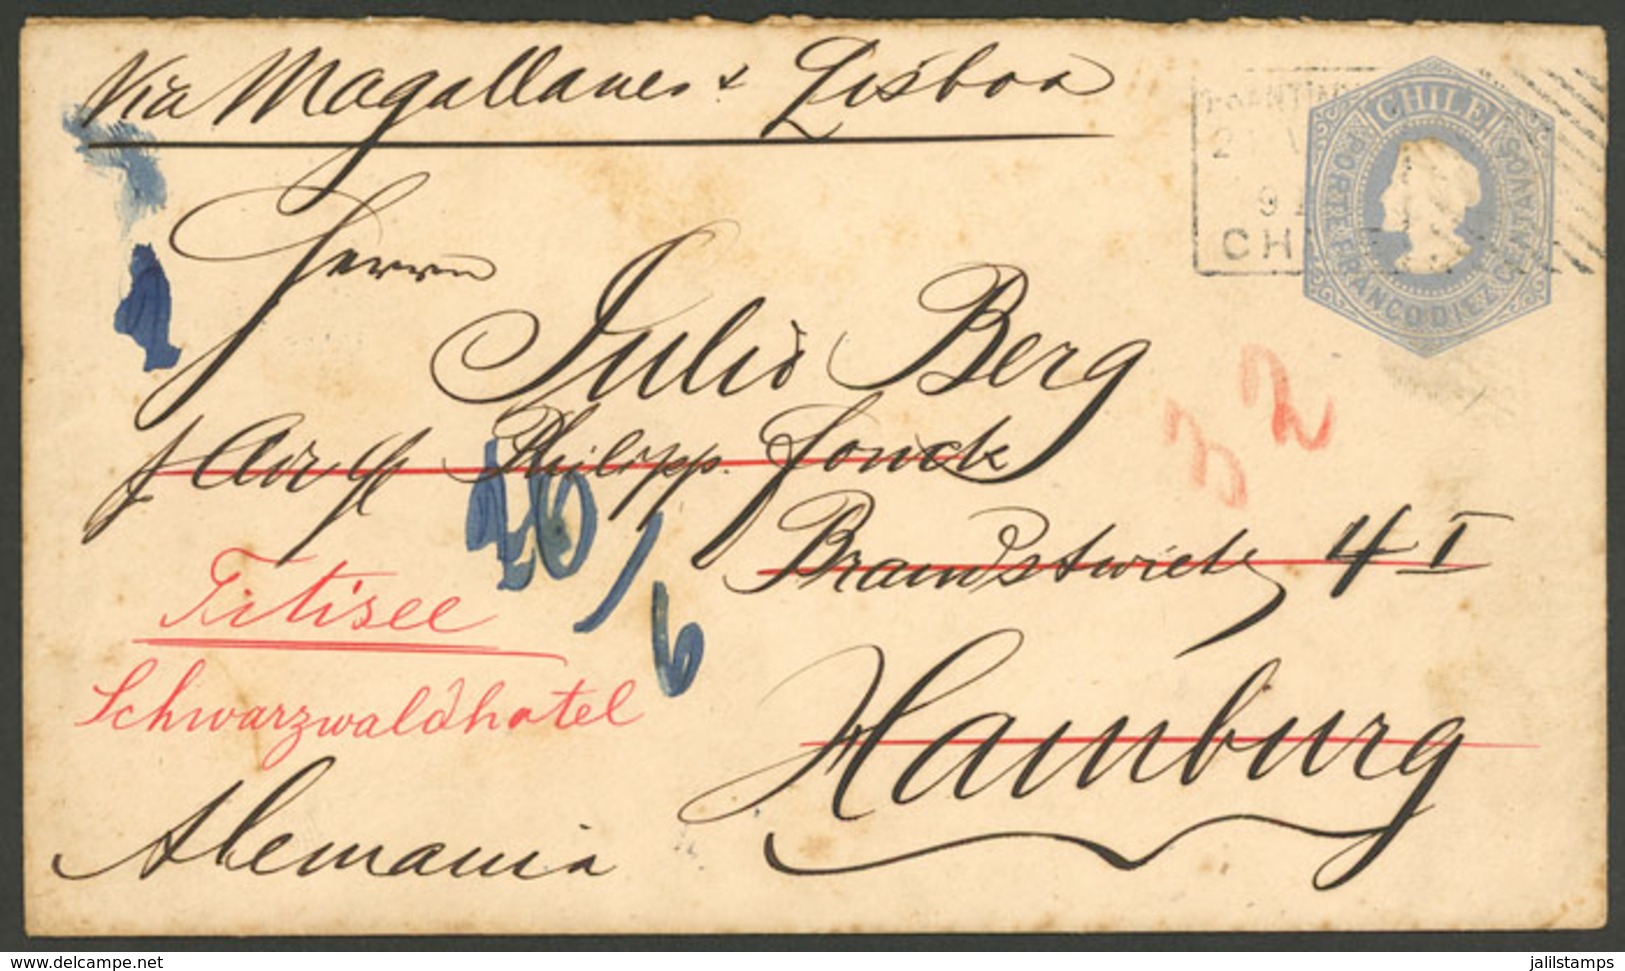 Via Magallanes & Lisboa
SANTIAGO
CHILE
PORTE FRANCO DIEZ CENTAVOS
91
CH
Herrn
Julio Berg
Philipp. Fonck
Brandstwiete 4 I
Hamburg
32
26/6
Titisee
Schwarzwaldhotel
Alemania
www.delcampe.net
jalilstamps